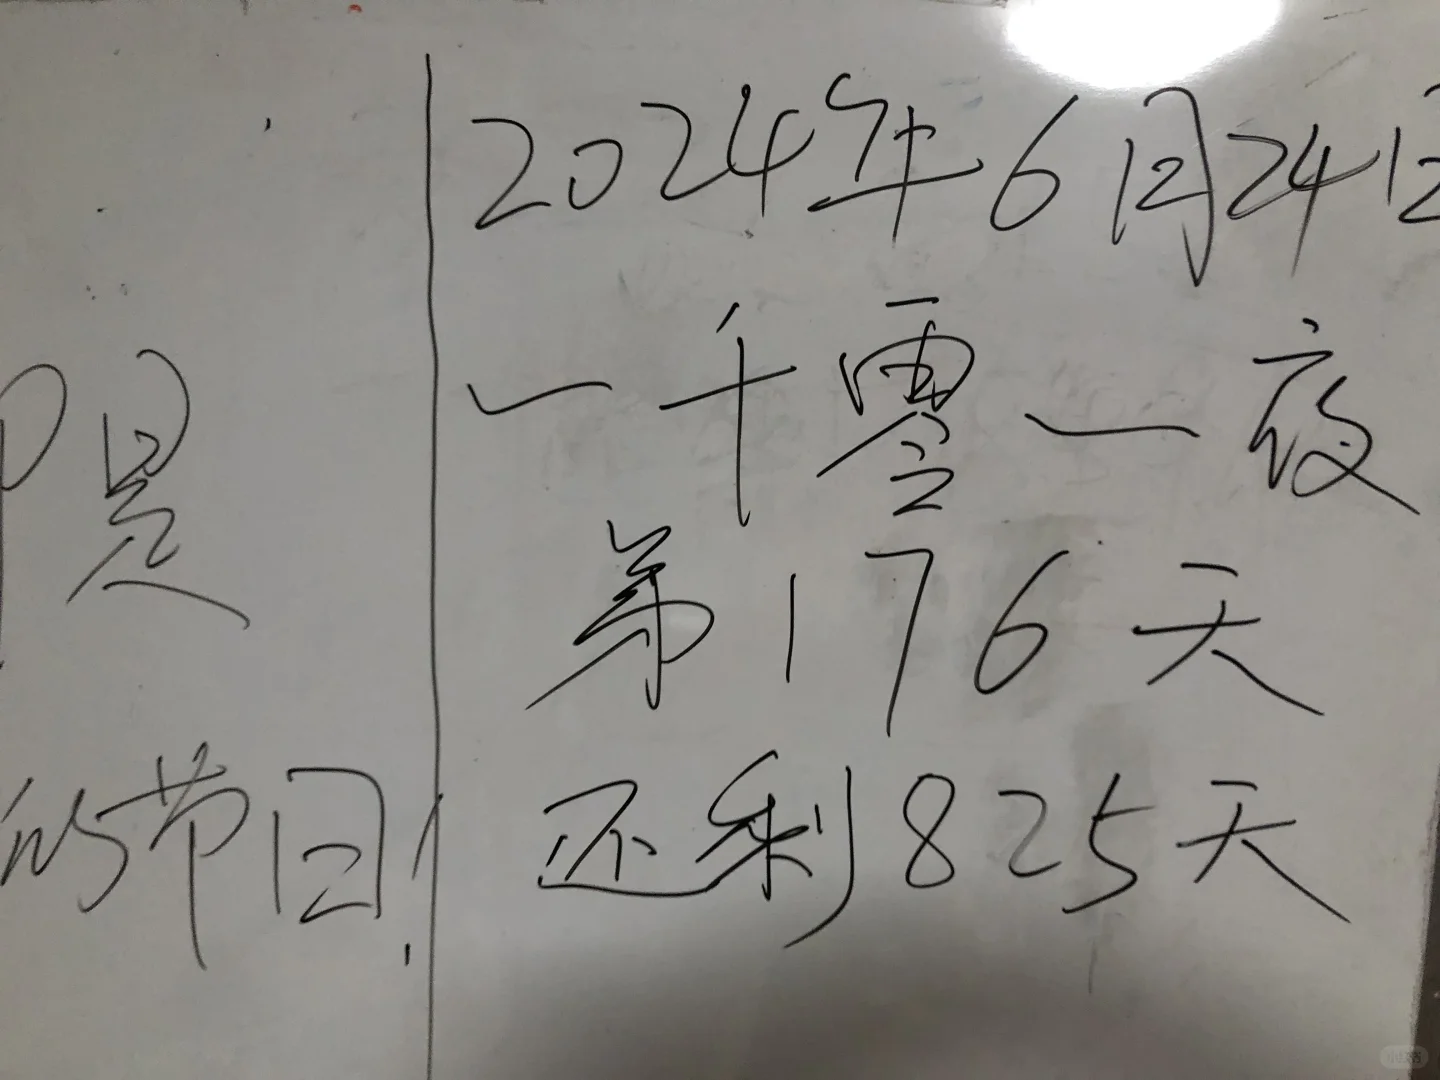 2024年6月24日
一千零一夜
第176天
还剩825天
是
的节日!
小红书